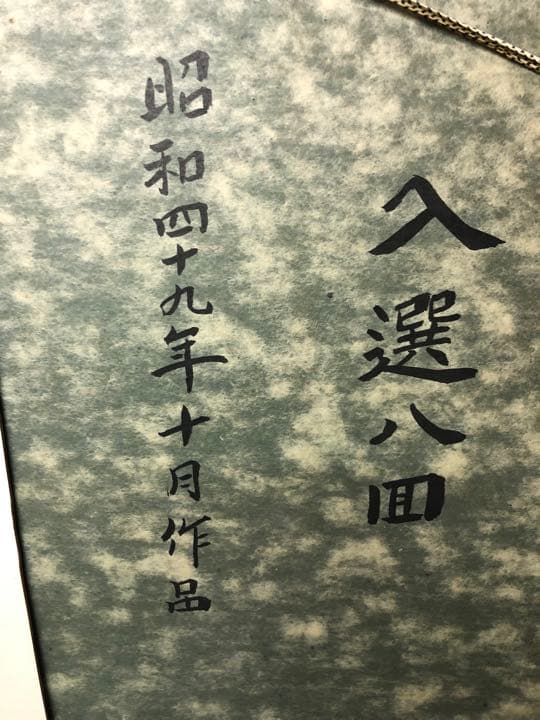 入選八回
昭和四十九年十月作品